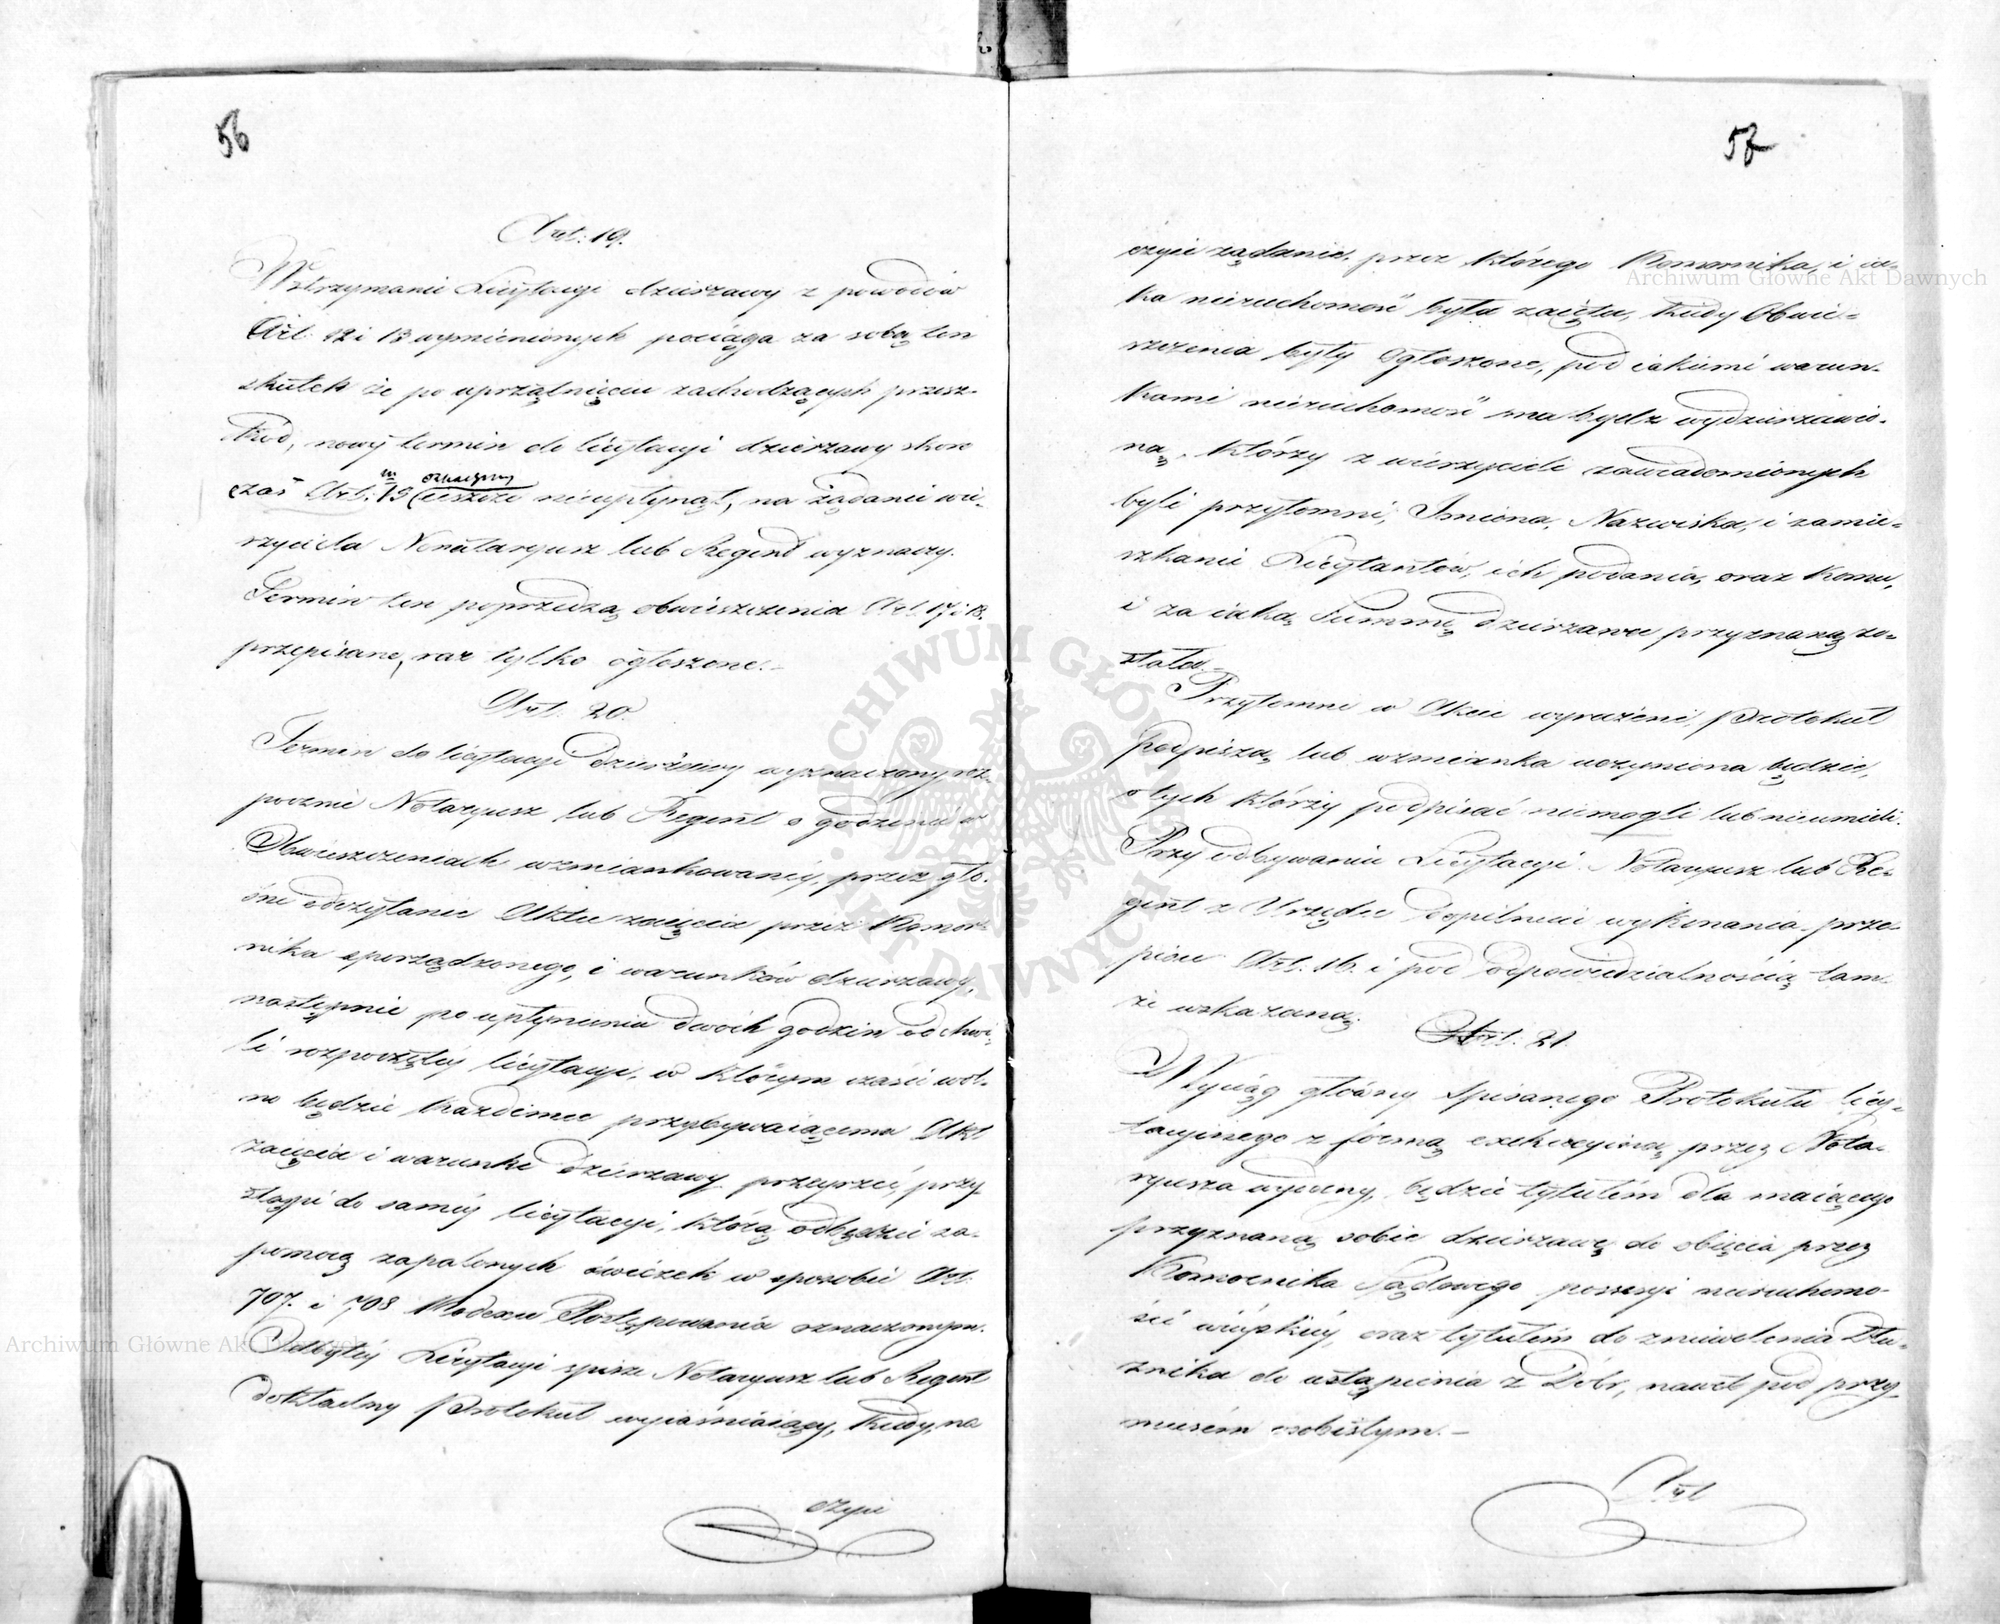 56
Art: 19.
Wstrzymanie Licytacyi dzierzawy z powodów
Art. 12 i 13 wymienionych pociąga za sobą ten
skutek że po uprzątnięciu zachodzących przesz-
kód, nowy termin do licytacyi dzierzawy skoro
czas Art: 13 oznaczony ieszcze nieupłynął, na żądanie wie-
rzyciela Notaryusz lub Regent wyznaczy.
Termin ten poprzedzą obwieszczenia Art. 17 i 18.
przepisane, raz tylko ogłoszone.-
Art: 20.
Termin do licytacyi dzierżawy wyznaczony roz-
pocznie Notaryusz lub Regent o godzinie w
Obwieszczeniach wzmiankowaney, przez gło-
śne odczytanie Aktu zaięcia przez Komor-
nika sporządzonego, i warunków dzierzawy,
następnie po upłynieniu dwóch godzin od chwi-
li rozpoczętey licytacyi, w którym czasie wol-
no będzie każdemu przybywaiącemu Akt
zaięcia i warunki dzierzawy przeyrzeć, przy-
stąpi do samey licytacyi, którą odbędzie za-
pomocą zapalonych świeczek w sposobie Art:
707. i 708 Kodexu Postępowania oznaczonym.
Odbytey Licytacyi spisze Notaryusz lub Regent
dokładny Protokuł wyiaśniaiący, kiedy, na
czyie
57
czyie żądanie, przez którego Komornika, i ia-
ka nieruchomość była zaięta, kiedy Obwie-
szczenia były Ogłoszone, pod iakiemi warun-
kami nieruchomość ma bydź wydzierzawio-
ną, którzy z wierzycieli zawiadomionych
byli przytomni, Imiona, Nazwiska, i zamie-
szkanie Licytantów, ich podania, oraz komu,
i za iaką Summę dzierzawa przyznaną zo-
stała.-
Przytomni w Akcie wyrażeni Protokuł
podpiszą lub wzmianka uczyniona będzie,
o tych którzy podpisać niemogli lub nieumieli.
Przy odbywaniu Licytacyi Notaryusz lub Re-
gent z Urzędu dopilnuie wykonania prze-
pisu Art. 16. i pod odpowiedzialnością tam-
że wskazaną.
Art: 21.
Wyciąg główny spisanego Protokułu licy-
tacyinego z formą exekucyiną przez Nota-
ryusza wydany, będzie tytułem dla maiącego
przyznaną sobie dzierzawę do obięcia przez
Komornika Sądowego possesyi nieruchomo-
ści wieyskiey, oraz tytułem do zniewolenia Dłu-
żnika do ustąpienia z Dóbr, nawet pod przy-
musem osobistym.-
Art
Archiwum Główne Akt Dawnych
Archiwum Główne Akt Dawnych
ARCHIWUM GŁÓWNE
AKT DAWNYCH